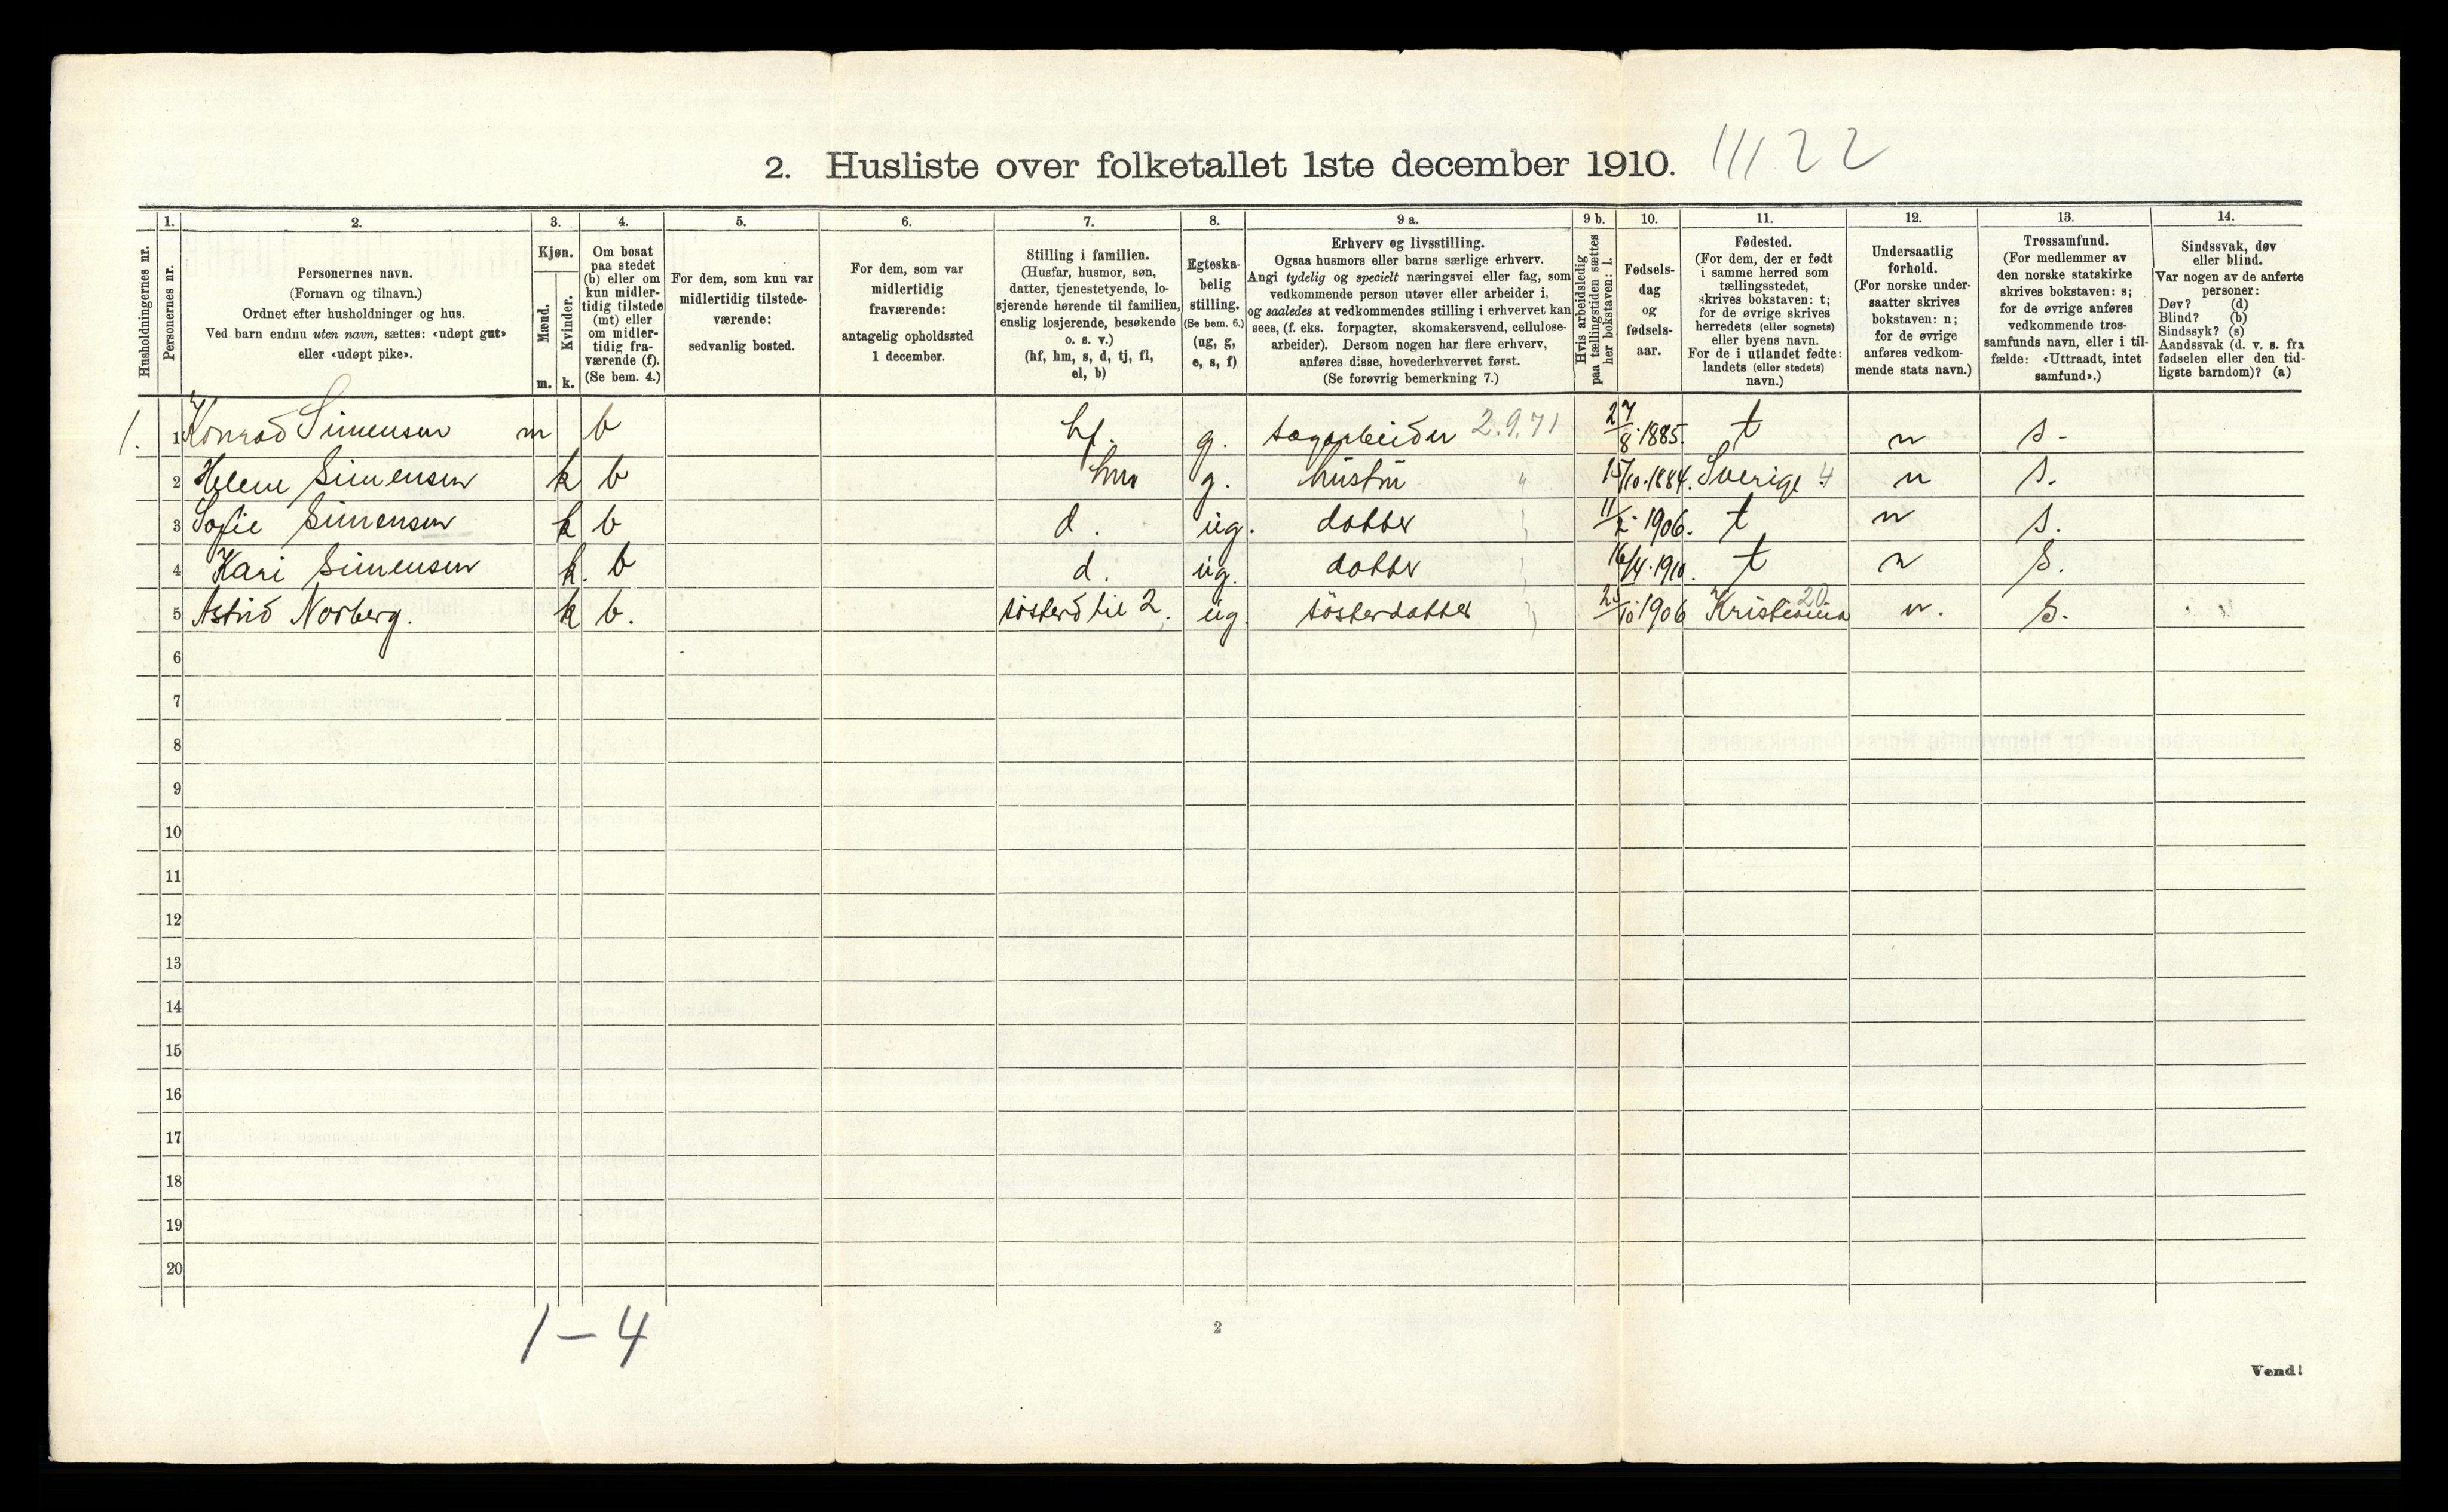 2. Husliste over folketallet 1ste december 1910. 111 22
Husholdningernes nr.
1.
Personernes nr.
2.
Personernes navn.
(Fornavn og tilnavn.)
Ordnet efter husholdninger og hus.
Ved barn endnu uten navn, sættes: «udøpt gut»
eller «udøpt pike».
3.
Kjøn.
Mænd.
m.
Kvinder.
k.
4.
Om bosat
paa stedet
(b) eller om
kun midler-
tidig tilstede
(mt) eller
om midler-
tidig fra-
værende (f).
(Se bem. 4.)
5.
For dem, som kun var
midlertidig tilstede-
værende:
sedvanlig bosted.
6.
For dem, som var
midlertidig
fraværende:
antagelig opholdssted
1 december.
7.
Stilling i familien.
(Husfar, husmor, søn,
datter, tjenestetyende, lo-
sjerende hørende til familien,
enslig losjerende, besøkende
o. s. v.)
(hf, hm, s, d, tj, fl,
el, b)
8.
Egteska-
belig
stilling.
(Se bem. 6.)
(ug, g,
e, s, f)
9 a.
Erhverv og livsstilling.
Ogsaa husmors eller barns særlige erhverv.
Angi tydelig og specielt næringsvei eller fag, som
vedkommende person utøver eller arbeider i,
og saaledes at vedkommendes stilling i erhvervet kan
sees, (f. eks. forpagter, skomakersvend, cellulose-
arbeider). Dersom nogen har flere erhverv,
anføres disse, hovederhvervet først.
(Se forøvrig bemerkning 7.)
9 b.
Hvis arbeidsledig
paa tællingstiden sættes
her bokstaven: l.
10.
Fødsels-
dag
og
fødsels-
aar.
11.
Fødested.
(For dem, der er født
i samme herred som
tællingsstedet,
skrives bokstaven: t;
for de øvrige skrives
herredets (eller sognets)
eller byens navn.
For de i utlandet fødte:
landets (eller stedets)
navn.)
12.
Undersaatlig
forhold.
(For norske under-
saatter skrives
bokstaven: n;
for de øvrige
anføres vedkom-
mende stats navn.)
13.
Trossamfund.
(For medlemmer av
den norske statskirke
skrives bokstaven: s;
for de øvrige anføres
vedkommende tros-
samfunds navn, eller i til-
fælde: «Uttraadt, intet
samfund».)
14.
Sindssvak, døv
eller blind.
Var nogen av de anførte
personer:
Døv? (d)
Blind? (b)
Sindssyk? (s)
Aandssvak (d. v. s. fra
fødselen eller den tid-
ligste barndom)? (a)
1. 1 Konrad Simensen m b hf. g. sagarbeider 2.9.71 27/8 1885. t n s.
2 Helene Simensen k b hm g. hustru 15/10.1884. Sverige 4 n s.
3 Sofie Simensen k b d. ug. datter 11/2 1906. t n s.
4 Kari Simensen k. b d. ug. datter 16/4.1910. t n s.
5 Astrid Norberg. k b. søsterd til 2. ug. søsterdatter /10 1906 Kristiania 20 n. s.
6
7
8
9
10
11
12
13
14
15
16
17
18
19
20
1 – 4
2
Vend!